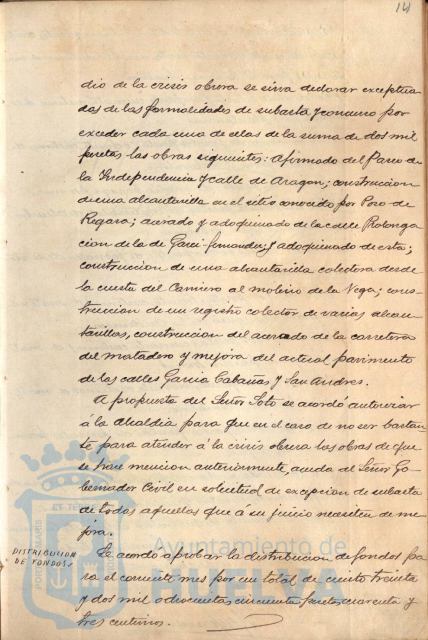 14
dio de la crisis obrera se sirva declarar exceptua
das de las formalidades de subasta y concurso por
exceder cada una de ellas de la suma de dos mil
pesetas las obras siguientes: afirmado del Paseo de
la Independencia y calle de Aragon; construccion
de una alcantarilla en el sitio conocido por Pozo de
acerado y adoquinado de la calle Prolonga
cion de la de Garci-Fernandez y adoquinado de esta;
construccion de una alcantarilla colectora desde
la cuesta del Carnicero al molino de la Vega; cons-
truccion de un registro colector de varias alcan-
tarillas, construccion del acerado de la carretera
del matadero y mejora del actual pavimento
de las calles Garcia Cabañas y San Andres.
A propuesta del Señor Soto se acordó autorizar
á la Alcaldia para que en el caso de no ser bastan-
te para atender á la crisis obrera las obras de que
se hace mencion anteriormente, acuda al Señor Go-
bernador Civil en solicitud de excepcion de subasta
de todas aquellas que á su juicio necesiten de me
jora.
DISTRIBUCION
DE FONDOS.
Se acordó aprobar la distribucion de fondos pa
ra el corriente mes por un total de ciento treinta
y dos mil ochocientas cincuenta pesetas cuarenta y
tres centimos.
Ayuntamiento de
HUELVA